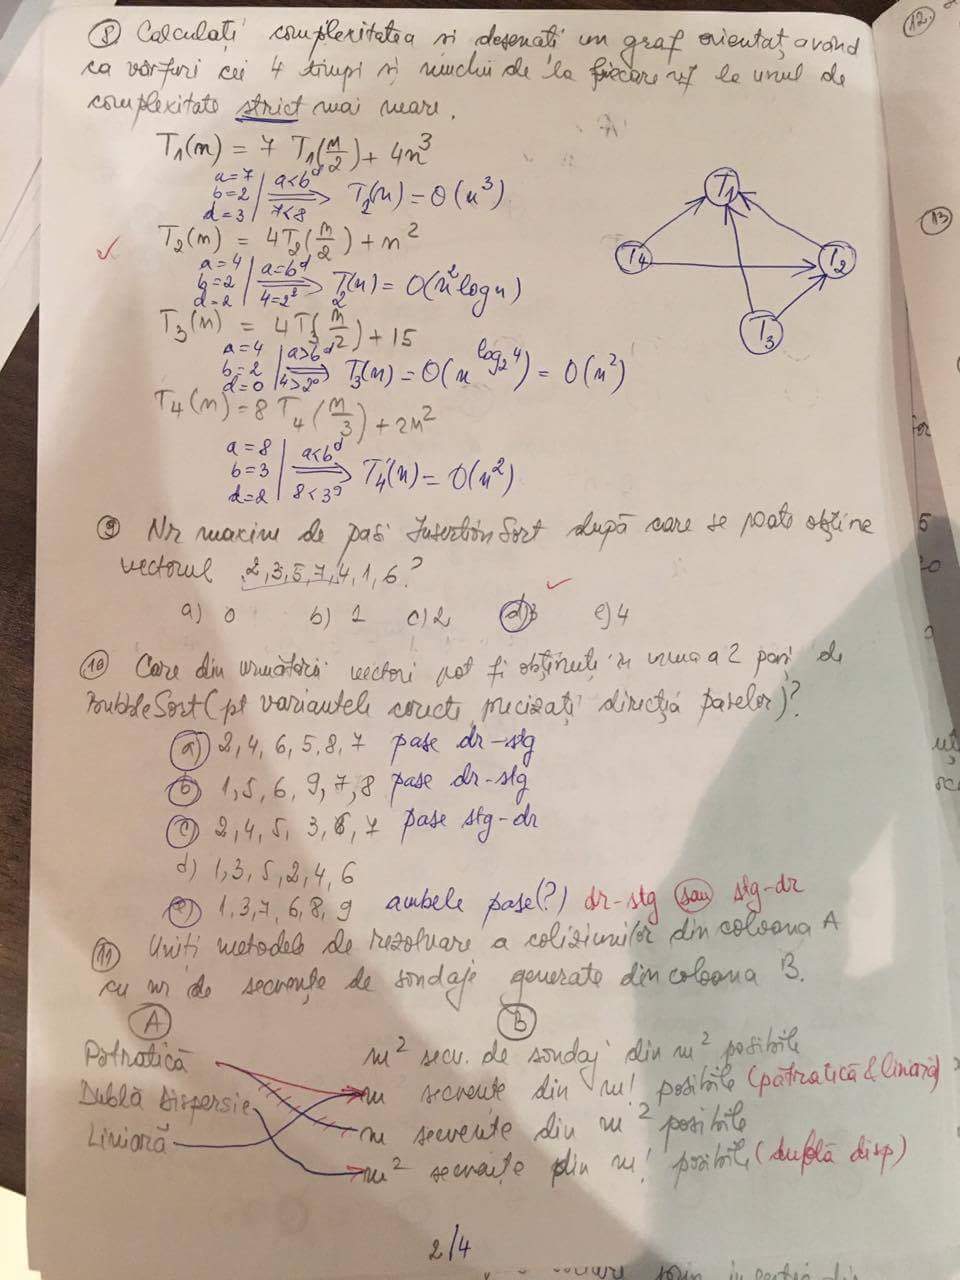 8) Calculați complexitatea și desenați un graf orientat, având
ca vârfuri cei 4 timpi și muchii de la fiecare vf la unul de
complexitate strict mai mare.
T₁(n) = 7 T₁(n/2) + 4n³
a=7
b=2
d=3
a<b^d
7<8
T₂(n) = O(n³)
T₂(n) = 4T₂(n/2) + n²
a=4
b=2
d=2
a=b^d
4=2²
T₂(n) = O(n² log n)
T₃(n) = 4T₃(n/2) + 15
a=4
b=2
d=0
a>b^d
4>2⁰
T₃(n) = O(n^(log₂4)) = O(n²)
T₄(n) = 8 T₄(n/3) + 2n²
a=8
b=3
d=2
a<b^d
8<3²
T₄(n) = O(n²)
T₁
T₄
T₂
T₃
9) Nr maxim de pași InsertionSort după care se poate obține
vectorul 2,3,5,7,4,1,6?
a) 0 b) 1 c) 2 d) 3 e) 4
10) Care din următorii vectori pot fi obținuți în urma a 2 pași de
BubbleSort (pt variantele corecte, precizați direcția paselor)?
a) 2,4,6,5,8,7 pase dr-stg
b) 1,5,6,9,7,8 pase dr-stg
c) 2,4,5,3,6,7 pase stg-dr
d) 1,3,5,2,4,6
e) 1,3,7,6,8,9 ambele pase(?) dr-stg sau stg-dr
11) Uniți metodele de rezolvare a coliziunilor din coloana A
cu nr de secvențe de sondaje generate din coloana B.
A B
Patratică
Dublă Dispersie
Liniară
m² secv. de sondaj din m² posibile
m secvențe din m! posibile (pătratică & liniară)
m secvențe din m² posibile
m² secvențe din m! posibile (dublă disp)
2/4
12.
13